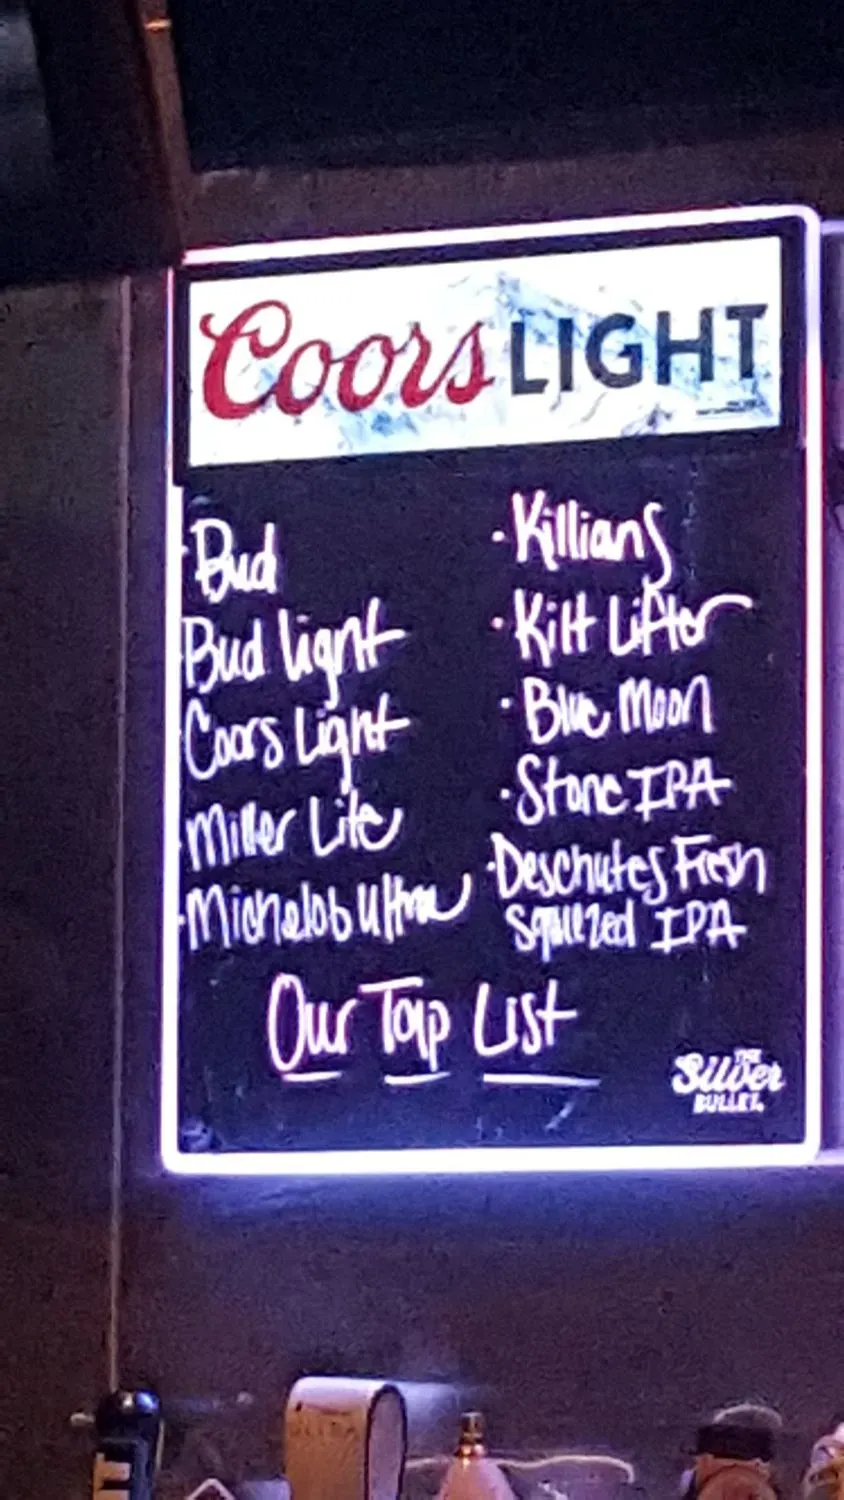 Coors LIGHT
·Bud
·Bud light
·Coors Light
·Miller Lite
·Michelob Ultra
·Killians
·Kilt Lifter
·Blue Moon
·Stone IPA
·Deschutes Fresh
squeezed IPA
Our Tap List
THE
Silver
BULLET.